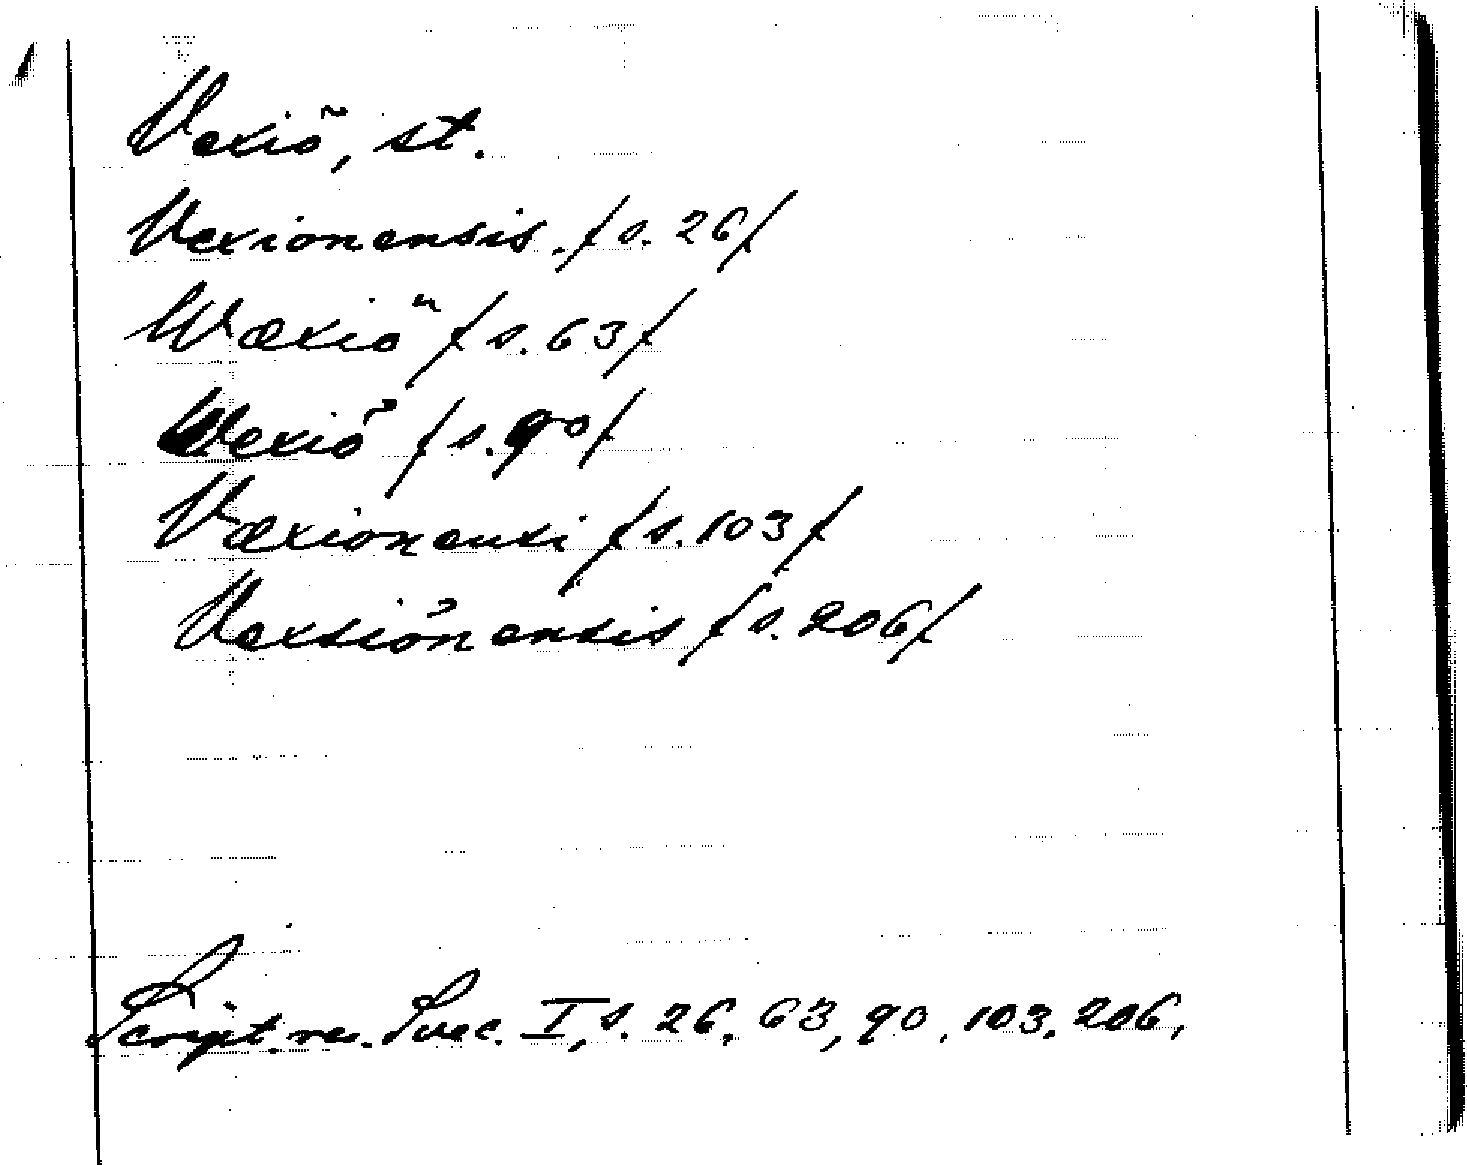 Vexiö, st.
Vexionensis. /s. 26/
Wæxiö /s. 63/
Wexiö /s. 90/
Væxionensi /s. 103/
Vexsiönensis /s. 206/
Script. rer. Svec. I, s. 26, 63, 90, 103, 206,